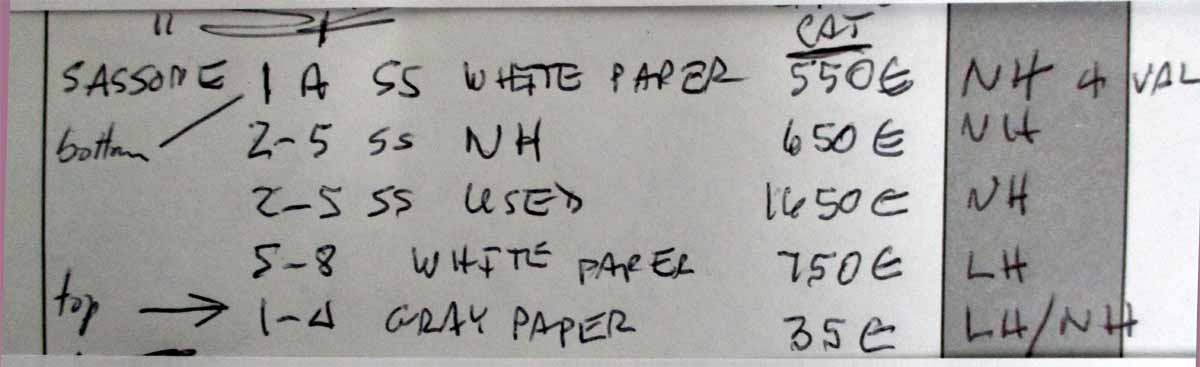 "
CAT
SASSONE 1 A SS WHITE PAPER 550€ NH + VAL
bottom 2-5 SS NH 650€ NH
2-5 SS USED 1650€ NH
5-8 WHITE PAPER 750€ LH
top → 1-4 GRAY PAPER 35€ LH/NH